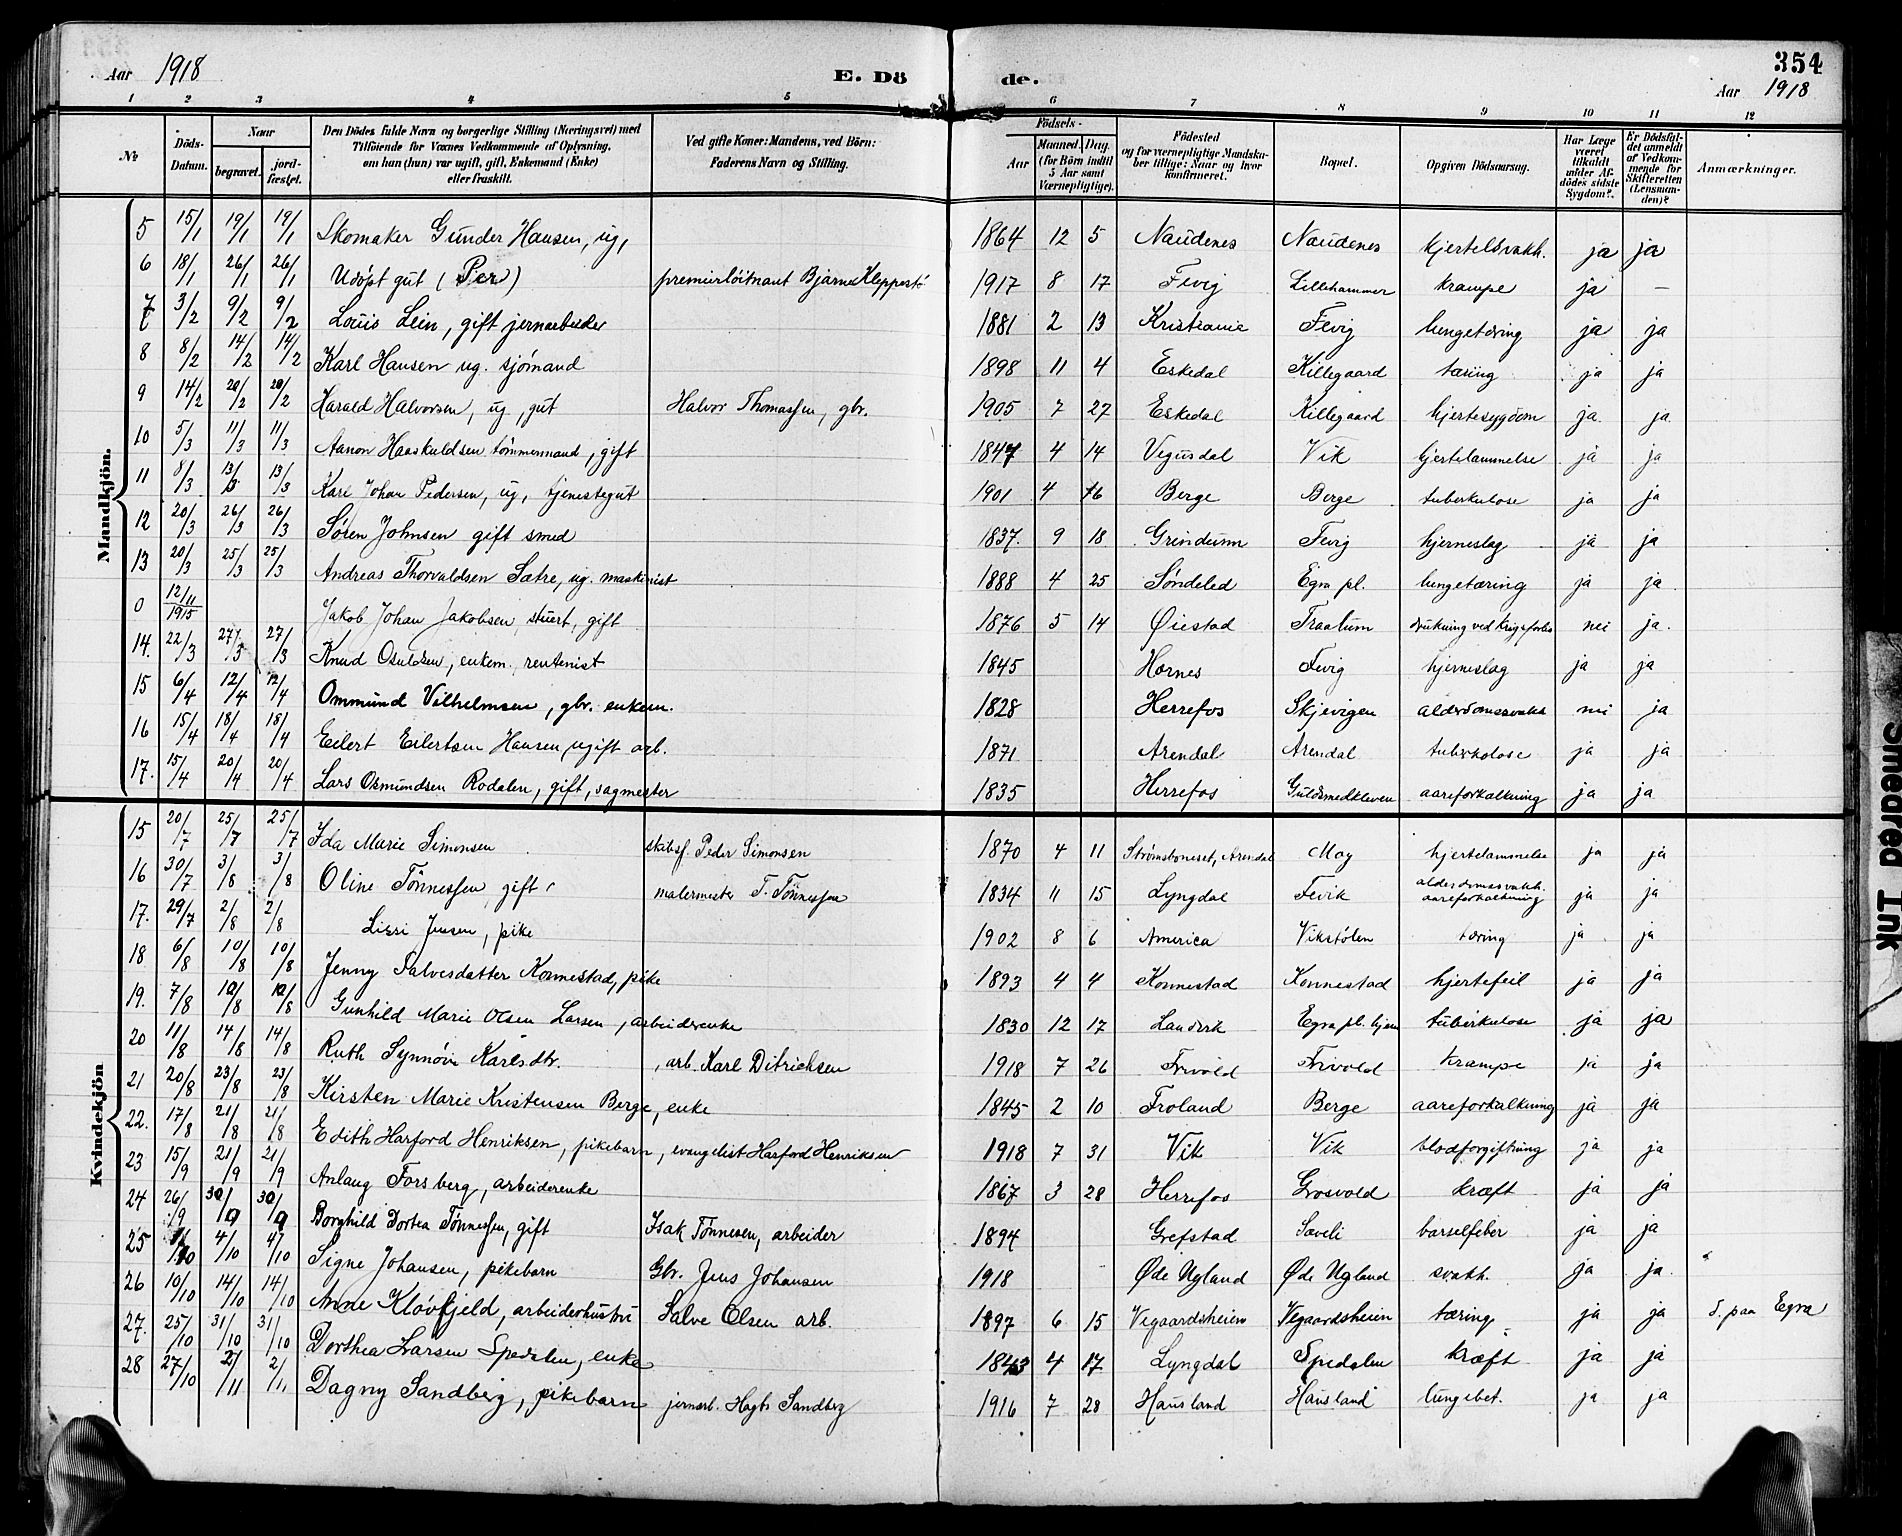 354
Aar 1918 E. Dö de. Aar 1918
1 2 3 4 5 6 7 8 9 10 11 12
No Döds-Datum. Naar begravet. jord-fæstet. Den Dödes fulde Navn og borgerlige Stilling (Næringsvei) med Tilföiende for Voxnes Vedkommende af Oplysning, om han (hun) var ugift, gift, Enkemand (Enke) eller fraskilt. Ved gifte Koner: Mandens, ved Börn: Faderens Navn og Stilling. Födsels- Aar Maaned. Dag. (for Börn indtil 5 Aar samt Værnepligtige). Födested og for værnepligtige Mandskaber tillige: Naar og hvor konfirmeret. Bopæl. Opgiven Dödsaarsag. Har Læge været tilkaldt under Afdödes sidste Sygdom? Er Dödsfaldet anmeldt af Vedkommende for Skifteretten (Lensmanden)? Anmærkninger.
Mandkjön.
5 15/1 19/1 19/1 Skomaker Gunder Hansen, ug, 1864 12 5 Naudenes Naudenes kjertelsvakh. ja ja
6 18/1 26/1 26/1 Udöpt gut (Per) premierlöitnant Bjarne Kleppestö 1917 8 17 Fevig Lillehammer krampe ja —
7 3/2 9/2 9/2 Louis Lein, gift jernarbeider 1881 2 13 Kristiania Fevig lungetæring ja ja
8 8/2 14/2 14/2 Karl Hansen ug. sjömand 1898 11 4 Eskedal Killegaard tæring ja ja
9 14/2 20/2 20/2 Harald Halvorsen, ug, gut Halvor Thomassen, gbr. 1905 7 27 Eskedal Killegaard hjertesygdom ja ja
10 5/3 11/3 11/3 Aanon Haaskuldsen tömmermand, gift 1847 4 14 Vegusdal Vik hjertelammelse ja ja
11 8/3 13/3 13/3 Karl Johan Pedersen, ug, tjenestegut 1901 4 16 Berge Berge tuberkulose ja ja
12 20/3 26/3 26/3 Sören Johnsen gift smed 1837. 9 18 Grindum Fevig hjerneslag ja ja
13 20/3 25/3 25/3 Andreas Thorvaldsen Sætre, ug. maskinist 1888 4 25 Söndeled Egra pl. lungetæring ja ja
0 12/11 1915 Jakob Johan Jakobsen, stuert, gift 1876 5 14 Øiestad Traalum drukning ved krigsforlis nei ja.
14. 22/3 27/3 27/3 Knud Osuldsen, enkem. rentenist 1845 Hornes Fevig hjerneslag ja ja
15 6/4 12/4 12/4 Ommund Vilhelmsen, gbr. enkem. 1828 Herrefos Skjevigen alderdomssvakh nei ja
16 15/4 18/4 18/4 Eilert Eilertsen Hansen, ugift arb. 1871 Arendal Arendal tuberkolose ja ja
17. 15/4 20/4 20/4 Lars Osmundsen Rodalen, gift, sagmester 1835 Herrefos Guldsmedkleven aareforkalkning ja ja
Kvindekjön
15 20/7 25/7 25/7 Ida Marie Simonsen skibsf. Peder Simonsen 1870 4 11 Strömsboneset, Arendal Moy hjertelammelse ja ja
16 30/7 3/8 3/8 Oline Tönnessen, gift malermester T. Tönnessen 1834 11 15 Lyngdal Fevik alderdomssvakh. aareforkalkning ja ja
17. 29/7 2/8 2/8 Lizzi Jensen, pike 1902 8 6 America Vikstölen tæring ja ja
18 6/8 10/8 10/8 Jenny Salvesdatter Konnestad, pike 1893 4 4 Konnestad Konnestad hjertefeil ja ja
19. 7/8 12/8 12/8 Gunhild Marie Olsen Larsen, arbeiderenke 1830 12 17 Landvik Egra pl. hjem tuberkulose ja ja
20 11/8 14/8 14/8 Ruth Synnöve Karlsdtr. , arb. Karl Ditrichsen 1918 7 26 Frivold Frivold krampe ja ja
21 20/8 23/8 23/8 Kirsten Marie Kristensen Berge, enke 1845 2 10 Froland Berge aareforkalkning ja ja
22. 17/8 21/8 21/8 Edith Harford Henriksen, pikebarn, evangelist Harford Henriksen 1918 7 31 Vik Vik blodforgiftning ja ja
23 15/9 21/9 21/9 Anlaug Forsberg, arbeiderenke 1867 3 28 Herrefos Grosvold kræft ja ja
24 26/9 30/9 30/9 Borghild Dortea Tönnessen, gift Isak Tönnesen, arbeider 1894 Grefstad Saveli barselfeber ja ja
25 1/10 4/10 4/10 Signe Johansen, pikebarn Gbr. Jens Johansen 1918 Øde Ugland Øde Ugland svakh. ja ja.
26 10/10 14/10 14/10 Anne Klövfjeld, arbeiderhustru Salve Olsen arb. 1897 6 15 Vegaardsheien Vegaardsheien tæring ja ja d. paa Egra
27. 25/10 31/10 31/10 Dorthea Larsen Spedalen, enke 1843 4 17 Lyngdal Spedalen kræft ja ja
28 27/10 2/11 2/11 Dagny Sandberg, pikebarn jernarb. Hagb. Sandberg 1916 7 28 Hausland Hausland lungebet. ja ja
Smeared Ink